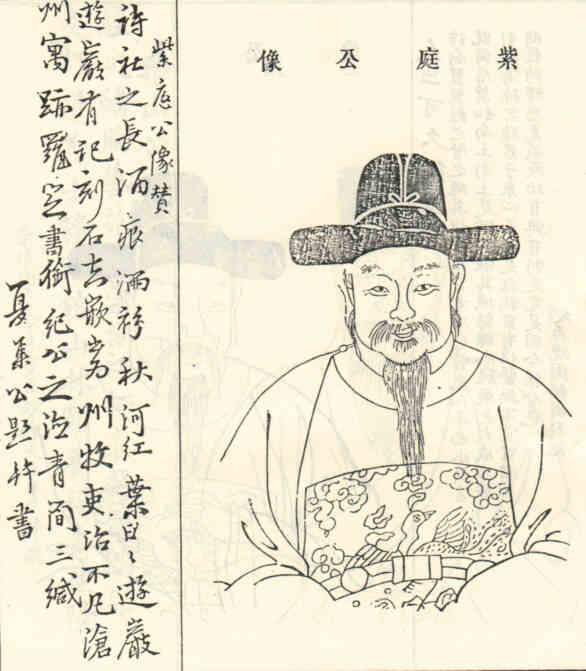 紫庭公像
紫庭公像贊
詩社之長酒痕洒衫秋河紅葉日〻遊巖
遊巖有記刻石嵌州牧吏治不凡滄
州寓跡羅定書銜紀公之治青簡三緘
夏公題幷書